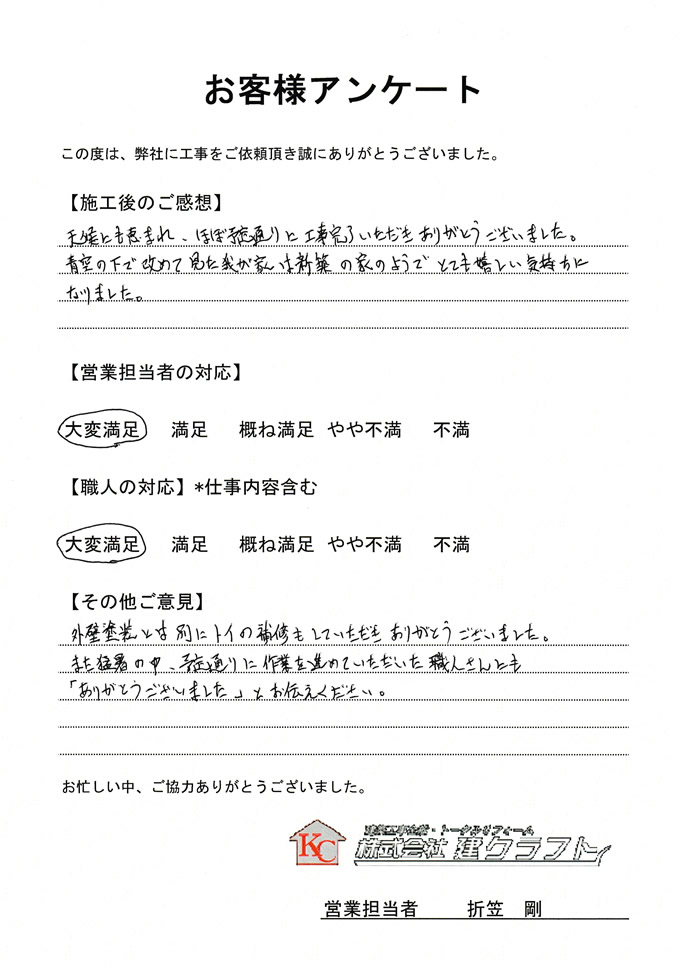 お客様アンケート
この度は、弊社に工事をご依頼頂き誠にありがとうございました。
【施工後のご感想】
天候にも恵まれ、ほぼ予定通りに工事完了いただきありがとうございました。
青空の下で改めて見た我が家は新築の家のようでとても嬉しい気持ちに
なりました。
【営業担当者の対応】
大変満足 満足 概ね満足 やや不満 不満
【職人の対応】*仕事内容含む
大変満足 満足 概ね満足 やや不満 不満
【その他ご意見】
外壁塗装とは別にトイの補修もしていただきありがとうございました。
また猛暑の中、予定通りに作業を進めていただいた職人さんにも
「ありがとうございました」とお伝えください。
お忙しい中、ご協力ありがとうございました。
KC
トータルリフォーム
株式会社 建クラフト
営業担当者 折笠 剛